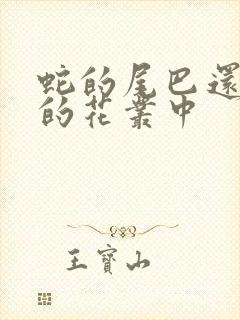 蛇的尾巴還
的花叢中
王寶山